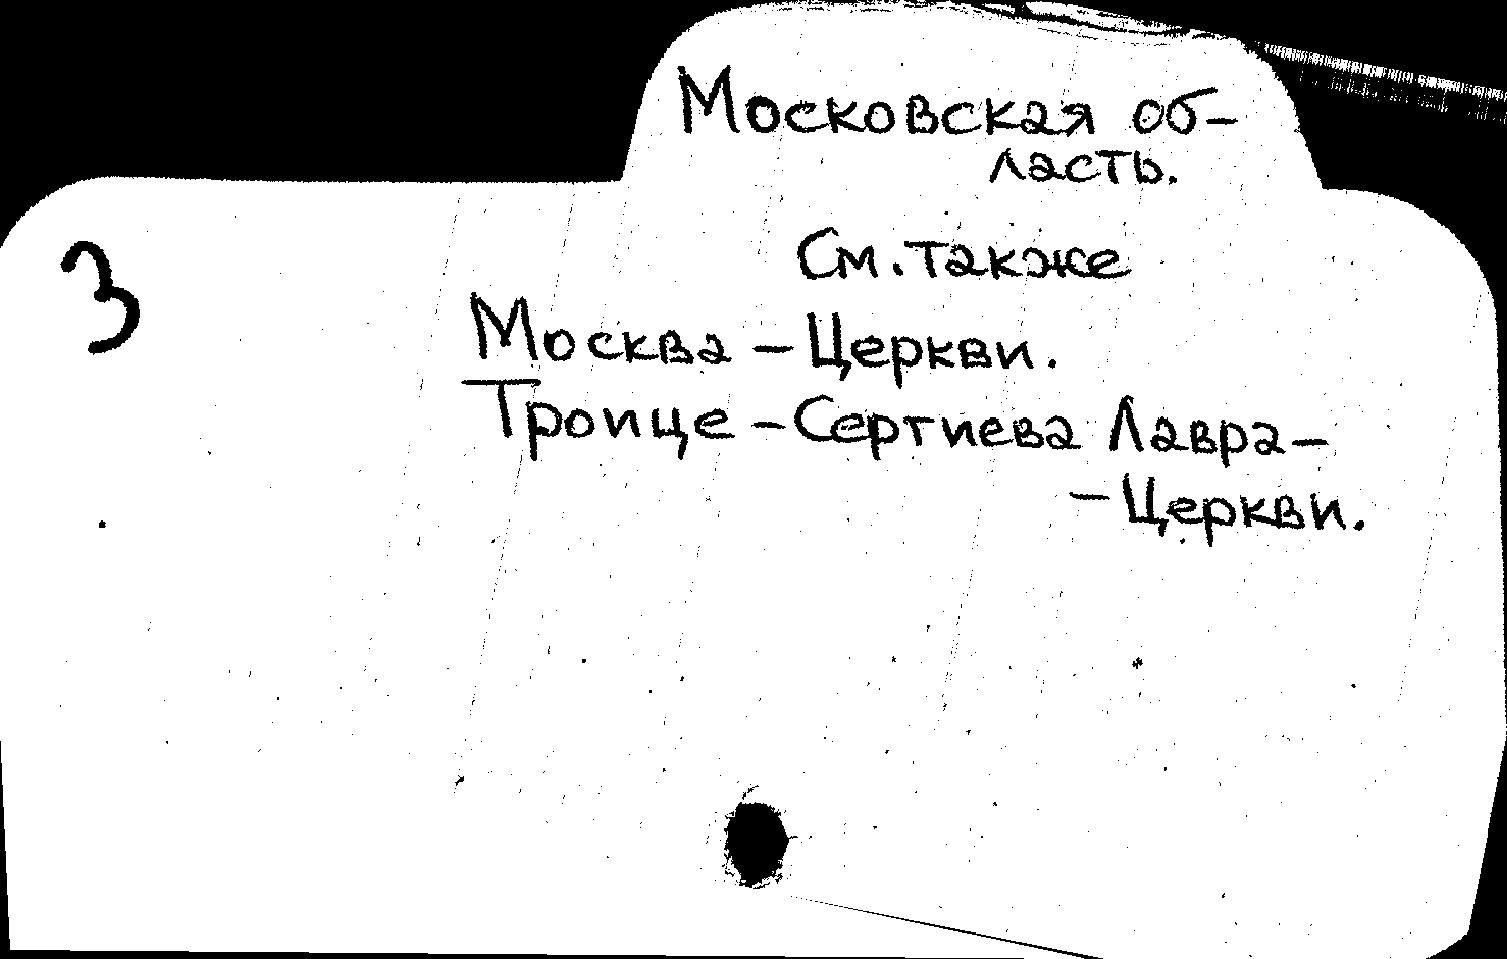 Московская об-
ласть.
3
См. также
Москва - Церкви.
Троице - Сергиева Лавра -
- Церкви.